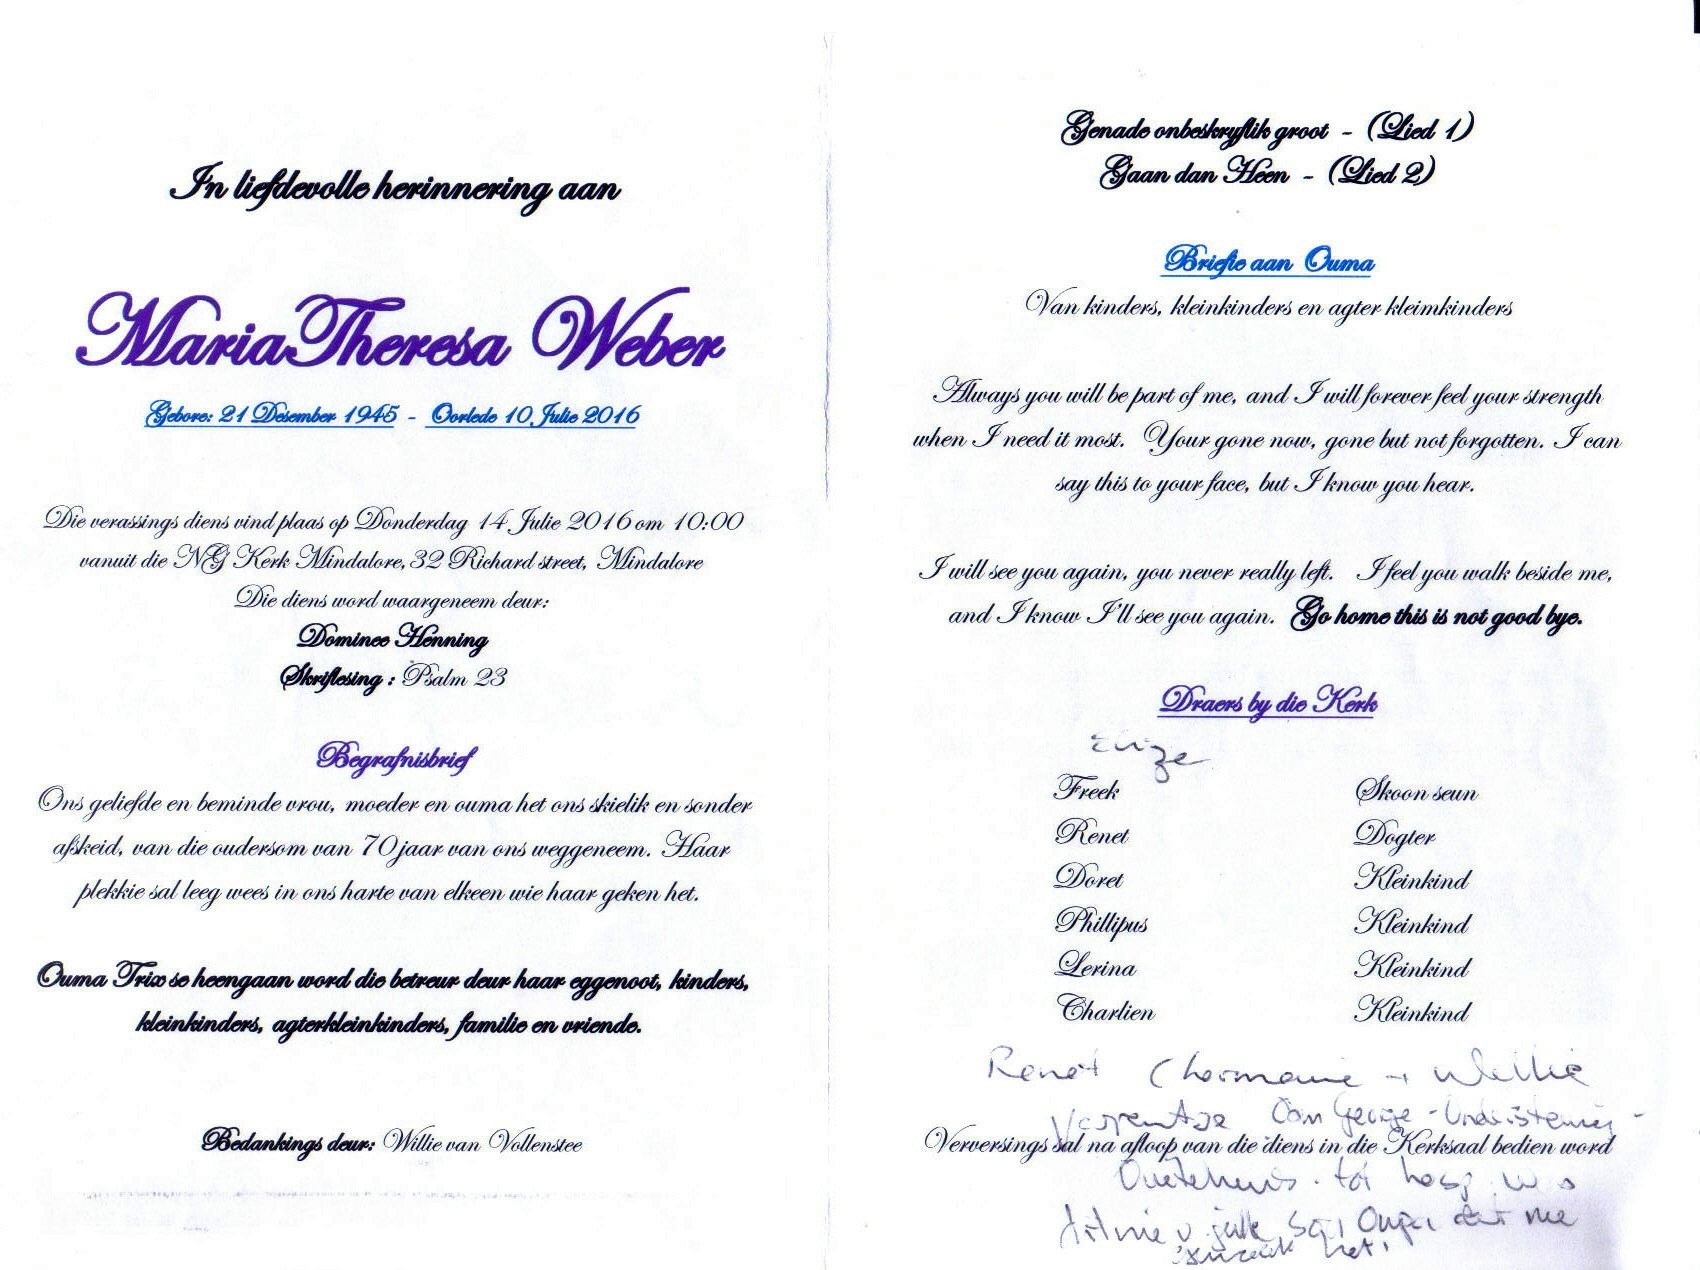 In liefdevolle herinnering aan
MariaTheresa Weber
Gebore: 21 Desember 1945 - Oorlede 10 Julie 2016
Die verassings diens vind plaas op Donderdag 14 Julie 2016 om 10:00
vanuit die NG Kerk Mindalore, 32 Richard street, Mindalore
Die diens word waargeneem deur:
Dominee Henning
Skriflesing : Psalm 23
Begrafnisbrief
Ons geliefde en beminde vrou, moeder en ouma het ons skielik en sonder
afskeid, van die oudersom van 70 jaar van ons weggeneem. Haar
plekkie sal leeg wees in ons harte van elkeen wie haar geken het.
Ouma Trix se heengaan word die betreur deur haar eggenoot, kinders,
kleinkinders, agterkleinkinders, familie en vriende.
Bedankings deur: Willie van Vollenstee
Genade onbeskryflik groot - (Lied 1)
Gaan dan Heen - (Lied 2)
Briefie aan Ouma
Van kinders, kleinkinders en agter kleimkinders
Always you will be part of me, and I will forever feel your strength
when I need it most. Your gone now, gone but not forgotten. I can
say this to your face, but I know you hear.
I will see you again, you never really left. I feel you walk beside me,
and I know I'll see you again. Go home this is not good bye.
Draers by die Kerk
Freek Skoon seun
Renet Dogter
Doret Kleinkind
Phillipus Kleinkind
Lerina Kleinkind
Charlien Kleinkind
Renet Charmaine + Willie
Oom George
Verversings sal na afloop van die diens in die Kerksaal bedien word